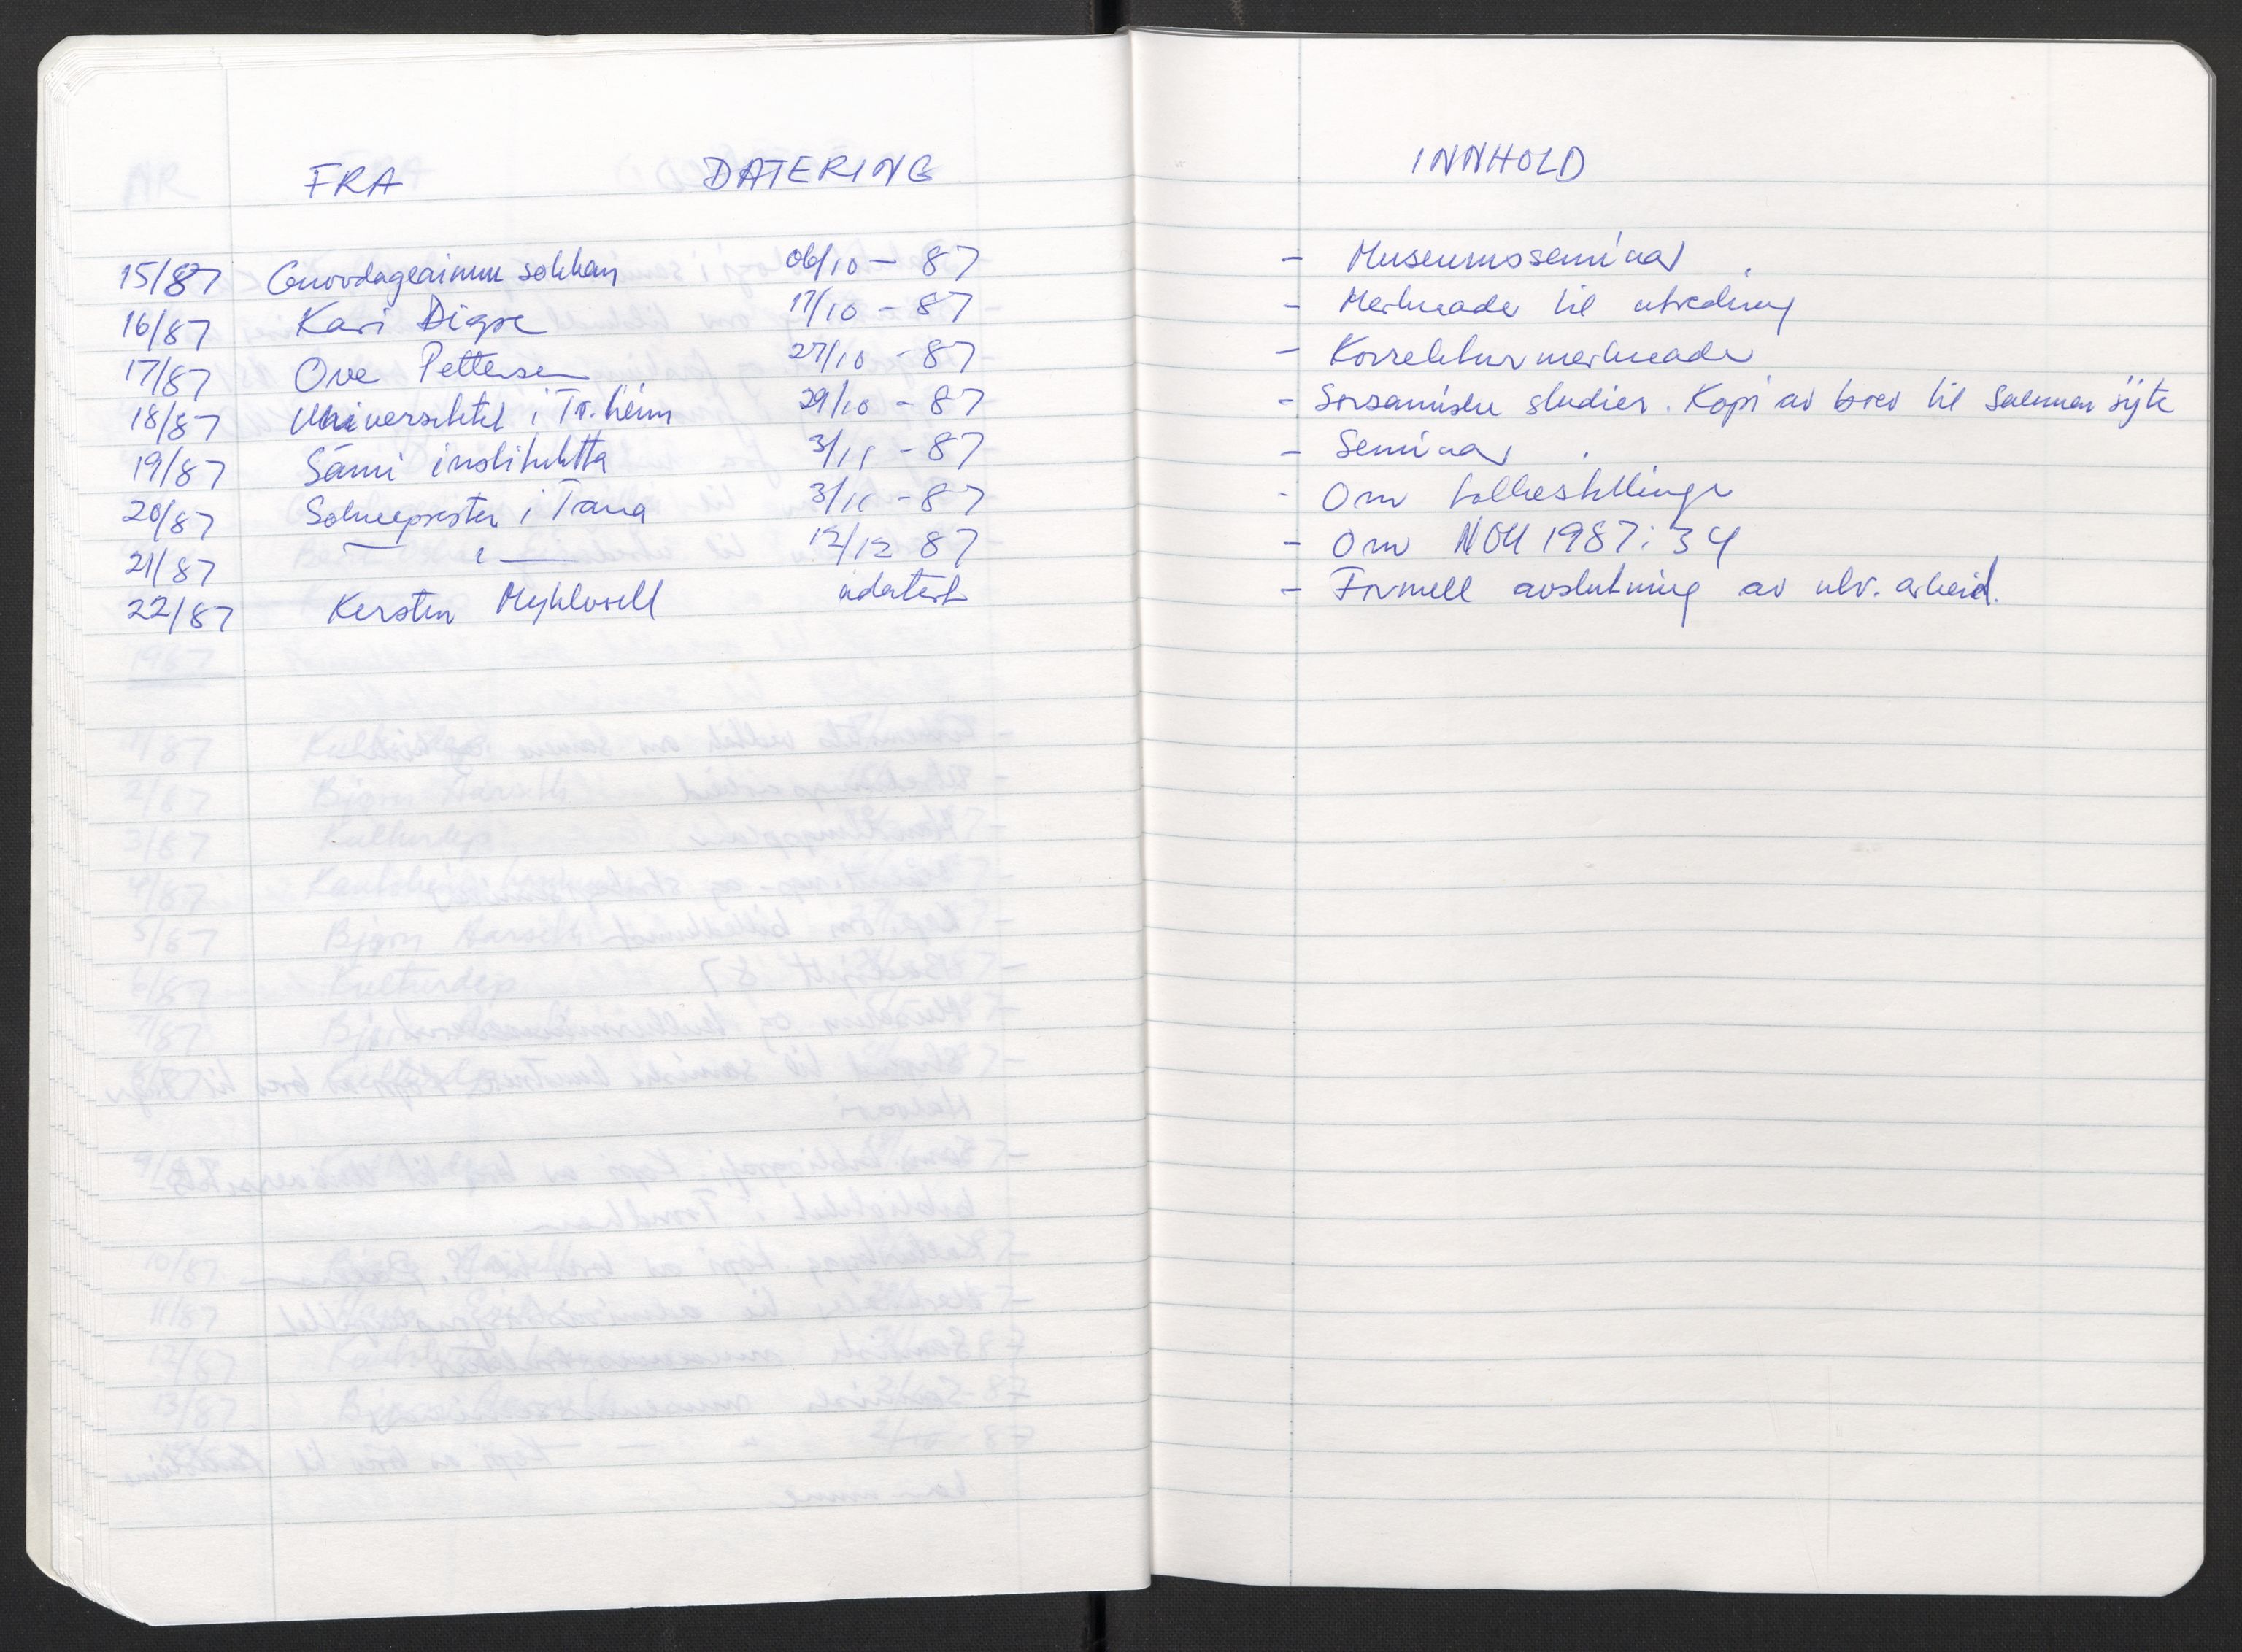 FRA DATERING INNHOLD
15/87 Guovdageainnu 06/10 - 87 - Museumsseminar
16/87 Kari Digre 17/10 - 87 - Merknader til utredning
17/87 Ove Pettersen 27/10 - 87 - Korrekturmerknader
18/87 Universitetet i Tr.heim 29/10 - 87 - Sørsamiske studier. Kopi av brev til Saemien sijte
19/87 Sámi instituhtta 3/11 - 87 - Seminar
20/87 Soknepresten i Tana 3/11 - 87 - Om tolkestillinger
21/87 — " — 12/12 87 - Om NOU 1987:34
22/87 Kersten udatert - Formell avslutning av utv. arbeid.